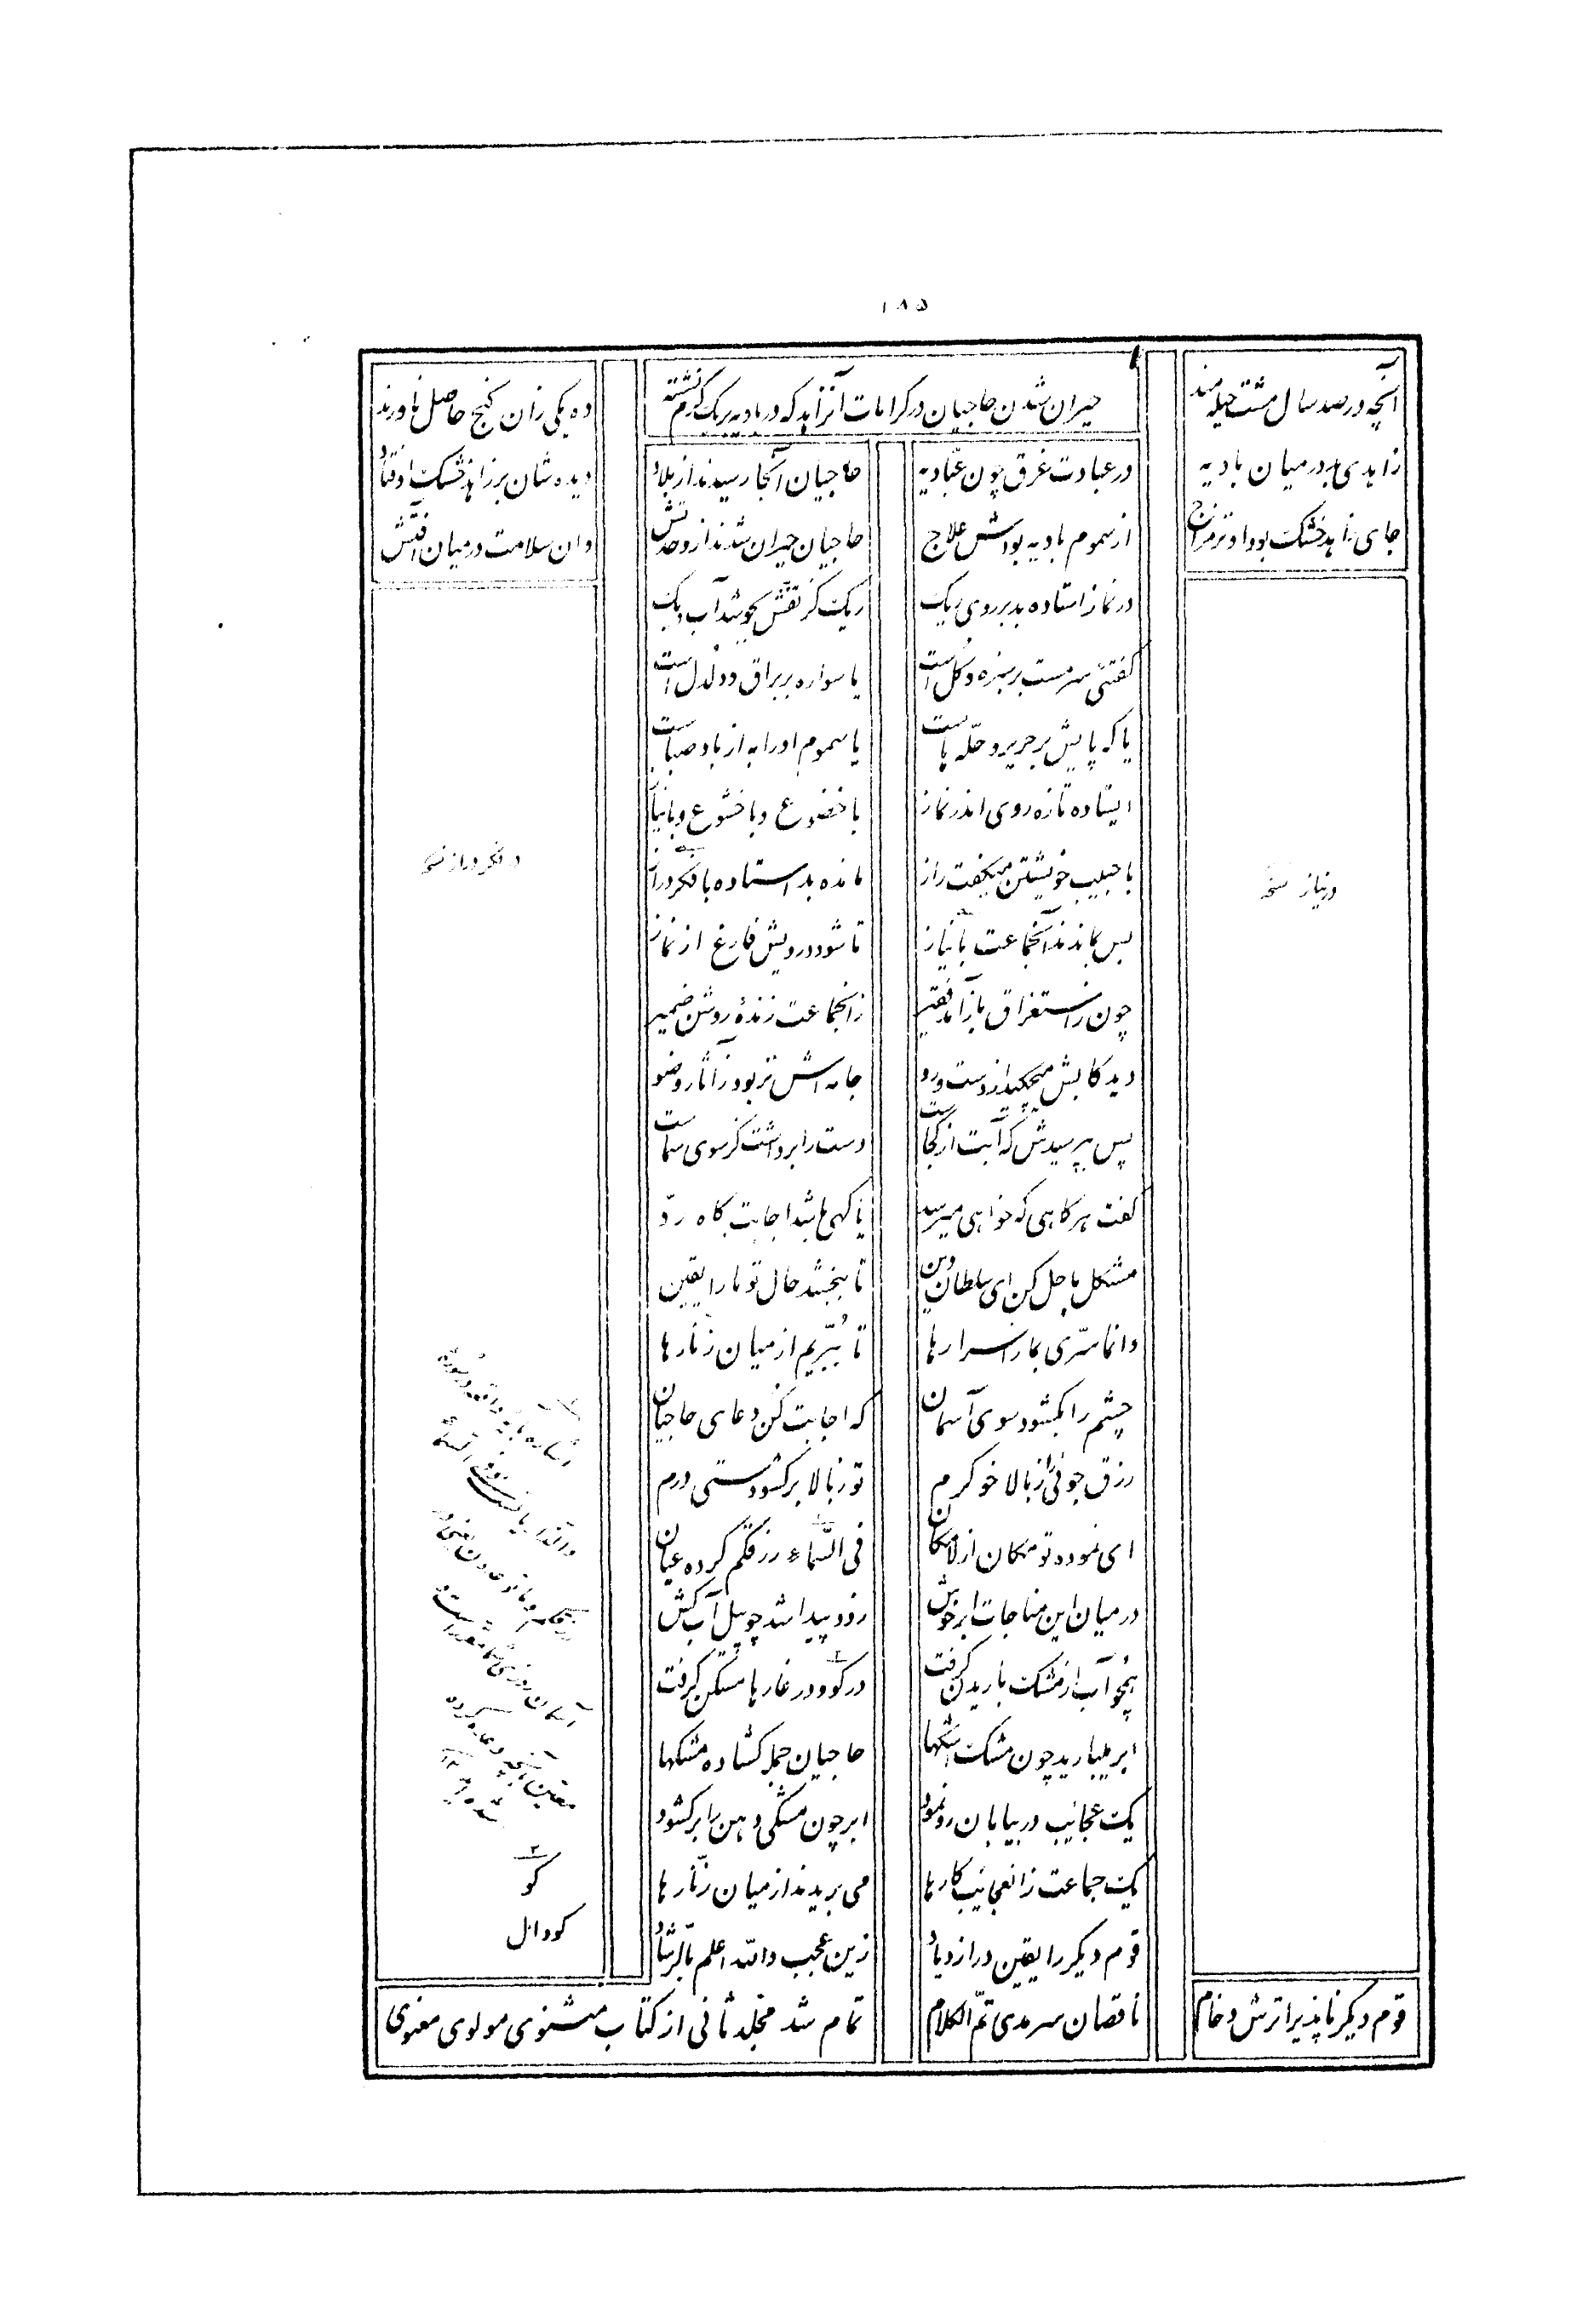 ۱۸۵
آنچه در صد سال مشت حیله مند
ده یکی زان گنج حاصل ناورند
حیران شدن حاجیان در کرامات آنزاهد که در بادیه بریک گرم نشسته
زاهدی بد در میان بادیه
در عبادت غرق چون عبّادیه
حاجیان آنجا رسیدند از بلاد
دیده شان بر زاهد خشک اوفتاد
جای زاهد خشک بود او تر مزاج
از سموم بادیه بودش علاج
حاجیان حیران شدند از وحدتش
وان سلامت در میان آفتش
در نماز استاده بد بر روی ریک
ریک کز تفّش بجوشد آب دیک
گفتئی سرمست بر سبزه و گل است
یا سواره بر براق و دلدل است
یا که پایش بر حریر و حلّه هاست
یا سموم او را به از باد صباست
ایستاده تازه روی اندر نماز
با خضوع و با خشوع و با نیاز
با حبیب خویشتن میگفت راز
مانده بد استاده با فکر دراز
در فکر دراز نسخه
پس بماندند آنجماعت با نیاز
تا شود درویش فارغ از نماز
در نیاز نسخه
چون ز استغراق باز آمد فقیر
زانجماعت زندهٔ روشن ضمیر
دید کابش میچکید از دست و رو
جامه اش تر بود ز آثار وضو
پس بپرسیدش که آبت از کجاست
دست را برداشت کز سوی سماست
گفت هر گاهی که خواهی میرسد
یا گهی باشد اجابت گاه ردّ
مشکل ما حل کن ای سلطان دین
تا ببخشد حال تو ما را یقین
وانما سرّی بما ز اسرارها
تا بُبرّیم از میان زنّارها
چشم را بگشود سوی آسمان
که اجابت کن دعای حاجیان
رزق جوئی را ز بالا خو گرم
تو ز بالا برگشودستی درم
ای نموده تو مکان از لامکان
فی السّماء رزقکم کرده عیان
در میان این مناجات ابر خوش
زود پیدا شد چو پیل آب کش
همچو آب از مشک باریدن گرفت
در گو و در غارها مسکن گرفت
ابر میبارید چون مشک اشکها
حاجیان جمله گشاده مشکها
یک عجائب در بیابان رو نمود
ابر چون مشکی دهن را برگشود
یک جماعت زانعجائب کارها
می بریدند از میان زنّارها
قوم دیگر را یقین در ازدیاد
زین عجب والله اعلم بالرّشاد
قوم دیگر ناپذیرا ترش و خام
ناقصان سرمدی تمّ الکلام
تمام شد مجلد ثانی از کتاب مثنوی مولوی معنوی
۲
گو
گودال